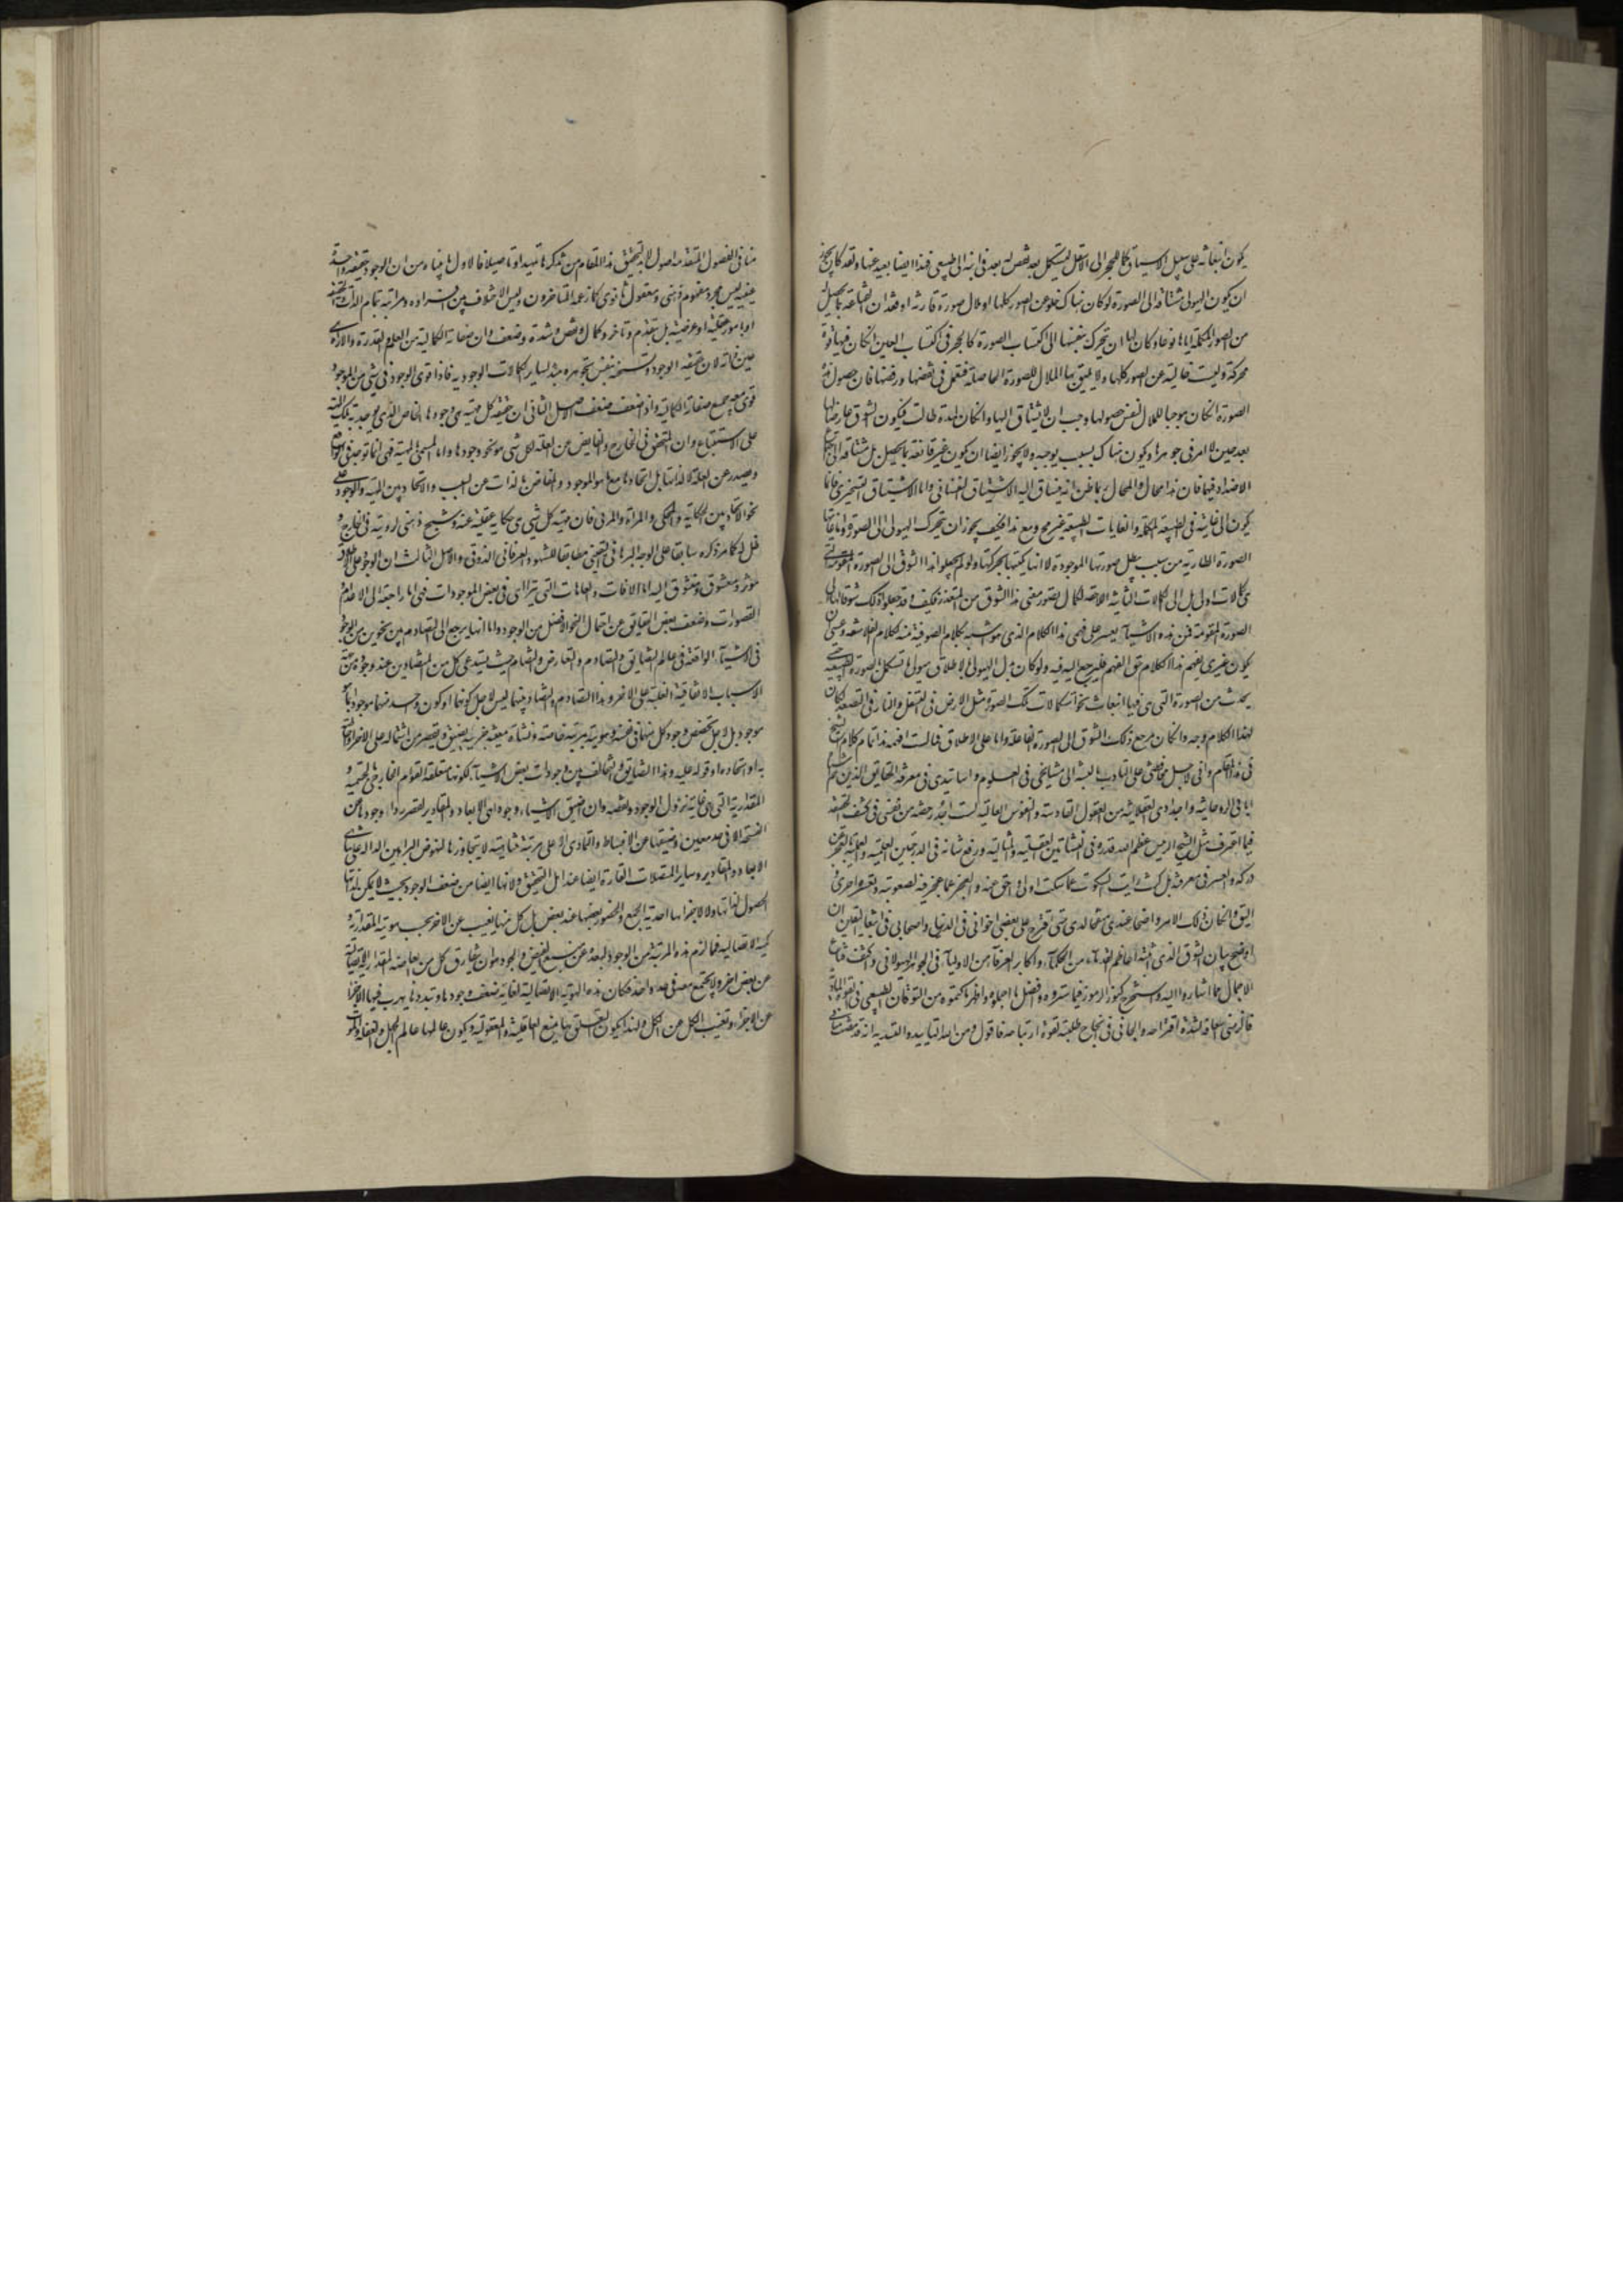 يكون انبعاثه على سبيل الانسياق كما للحجر الى الاسفل ليستكمل بعد نقص له بعد فى اينه الطبيعى فهذا ايضا بعيد عنها ولقد كان يجوز
ان يكون الهيولى مشتاقة الى الصورة لو كان هناك خلو عن الصور كلها او ملال صورة قارنته او فقدان القناعة بما يحصل له
من الصور المكملة اياها نوعا وكان لها ان تتحرك بنفسها الى اكتساب الصورة كما للحجر فى اكتساب الاين ان كان فيها قوة
محركة وليست خالية عن الصور كلها ولا يليق بها الملال للصورة الحاصلة فتعمل فى نقضها ورفضها فان حصول هذه
الصورة ان كان موجبا للملال لنفس حصولها وجب ان لا يشتاق اليها وان كان لمدة طالت فيكون الشوق عارضا لها
بعد حين لا امر فى جوهرها ويكون هناك سبب يوجبه ولا يجوز ايضا ان يكون غير قانعة بما يحصل بل مشتاقة الى اجتماع
الاضداد فيها فان هذا محال والمحال ربما ظن انه ينساق اليه الاشتياق النفسانى واما الاشتياق التسخيرى فانما
يكون الى غاية فى الطبيعة المكملة والغايات الطبيعية غير محال ومع هذا فكيف يجوز ان يتحرك الهيولى الى الصورة وانما يأتيها
الصورة الطارية من سبب يبطل صورتها الموجودة لا انها يكتسبها بحركتها ولو لم يجعلوا هذا الشوق الى الصورة المقومة التى
هى كمالات اولى بل الى الكمالات الثانية اللاحقة لكان تصور معنى هذا الشوق من المتعذر فكيف وقد جعلوا ذلك شوقا لها الى
الصورة المقومة فمن هذه الاشياء يعسر على فهمى هذا الكلام الذى هو اشبه بكلام الصوفية منه بكلام الفلاسفة وعسى ان
يكون غيرى يفهم هذا الكلام حق الفهم فليرجع اليه فيه ولو كان بدل الهيولى بالاطلاق هيولى ما تستكمل بالصورة الطبيعية حتى
يحدث من الصورة التى هى فيها انبعاث نحو استكمالات تلك الصورة مثل الارض فى التسفل والنار فى التصعد لكان
لهذا الكلام وجه وان كان مرجع ذلك الشوق الى الصورة الفاعلة واما على الاطلاق فما لست افهمه هذا تمام كلام الشيخ
فى هذا المقام وانى لاجل محافظتى على التأدب بالنسبة الى مشايخى فى العلوم واساتيدى فى معرفة الحقايق الذين هم اشباه
آبائى الروحانية واجدادى العقلانية من العقول القادسة والنفوس العالية لست اجد رخصة من نفسى فى كشف الحقيقة
فيما اعترف مثل الشيخ الرئيس عظم الله قدره فى النشأتين العقلية والمثالية ورفع شانه فى الدرجتين العلمية والعملية بالعجز عن
دركه والعسر فى معرفته بل كنت رايت السكوت عما سكت اولى واحق عنه والعجز عما عجز فيه لصعوبته وتعسره احرى
واليق وان كان ذلك الامر واضحا عندى منقحا لدى حتى اقترح على بعض اخوانى فى الدين واصحابى فى ابتغاء اليقين ان
اوضح بيان الشوق الذى اثبته افاخم القدماء من الحكماء واكابر العرفاء من الاولياء فى الجوهر الهيولانى واكشف قناع
الاجمال عما اشاروا اليه واستخرج كنوز الرموز فيما ستروه وافصل ما اجملوه واظهر ما كتموه من التوقان الطبيعى فى القوة المادية
فالزمنى اسعافه لشدة اقتراحه والجأنى فى انجاح طلبته لقوة ارتياحه فاقول ومن الله التأييد والتسديد انه قد مضت
منا فى الفصول المتقدمة اصول لا بد لتحقيق هذا المقام من تذكرها تمهيدا وتاصيلا فالاول ما بيناه من ان الوجود حقيقة واحدة
عينية ليس مجرد مفهوم ذهنى ومعقول ثانوى كما زعمه المتاخرون وليس الاختلاف بين افراده ومراتبه بتمام الذات والحقيقة
او بامور فصلية او عرضية بل بتقدم وتاخر وكمال ونقص وشدة وضعف وان صفاته الكمالية من العلم والقدرة والارادة هى
عين ذاته لان حقيقة الوجود وسنخه بنفس تجوهره مبدأ لساير الكمالات الوجودية فاذا قوى الوجود فى شى من الموجودات
قوى معه جميع صفاته الكمالية واذا ضعف ضعفت الاصل الثانى ان حقيقة كل ماهية هى وجودها الخاص الذى يوجد به تلك الماهية
على الاستتباع وان المتحقق فى الخارج والفايض عن العلة لكل شى هو نحو وجوده واما المسمى بالماهية فهى انما توجد فى الواقع
ويصدر عن العلة لا لذاتها بل لاتحادها مع ما هو الموجود والمفاض بالذات عن السبب والاتحاد بين الماهية والوجود على
نحو الاتحاد بين الحكاية والمحكى والمرآة والمرئى فان ماهية كل شى هى حكاية عقلية عنه وشبح ذهنى لرؤيته فى الخارج و
ظل له كما مر ذكره سابقا على الوجه البرهانى اليقينى مطابقا للشهود العرفانى الذوقى والاصل الثالث ان الوجود على الاطلاق
مؤثر ومعشوق ومتشوق اليه واما الافات والعاهات التى يتراءى فى بعض الموجودات فهى اما راجعة الى الاعدام و
القصورات وضعف بعض الحقايق عن احتمال النحو الافضل من الوجود واما انها يرجع الى التصادم بين نحوين من الوجود
فى الاشياء الواقعة فى عالم التضايق والتصادم والتعارض والتضام حيث يستدعى كل من المتضادين عند وجود
الاسباب الاتفاقية الغلبة على الاخر وهذا التصادم والتضاد بينهما ليس لاجل كونهما او كون واحد منهما موجودا بما هو
موجود بل لاجل تخصص وجود كل منهما فى نفسه وهويته بمرتبة خاصة ونشأة معينة جزئية يضيق ويقصر عن اشتماله على الاخر او احاطته
به او اتحاده او قوله عليه وهذا التضايق والتخالف بين وجودات بعض الاشياء لكونها متعلقة القوام الخارجى بالجسمية و
المقدارية التى هى غاية نزول الوجود ونقصه وان ضيق الاشياء وجودا هى الابعاد والمقادير لقصر رداء وجودها عن
الفسحة الا فى حد معين وضيقها عن الانبساط والتمادى الا على مرتبة متناهية لا يتجاوزها لنهوض البراهين الدالة على تناهى
الابعاد والمقادير وساير المتصلات القارة ايضا عند اهل التحقيق ولانها ايضا من ضعف الوجود بحيث لا يمكن لذاتها
الحصول لذاتها ولا لاجزائها احدية الجمع والحضور بعضها عند بعض بل كل منها يغيب عن الاخر بحسب هويته المقدارية و
كميته الاتصالية فما لزم هذه المرتبة من الوجود لبعده عن منبع الفيض والجود هو ان يفارق كل من ابعاضه المقدارية الاتصالية
عن بعض اخر ولا يجتمع معه فى حد واحد فكان هذه الهوية الاتصالية لغاية ضعف وجودها وتبددها يهرب فيها الاجزاء
عن الاجزاء وتغيب الكل عن الكل ولهذا يكون التعلق بها يمنع العاقلية والمعقولية ويكون عالمها عالم الجهل والغفلة والموت